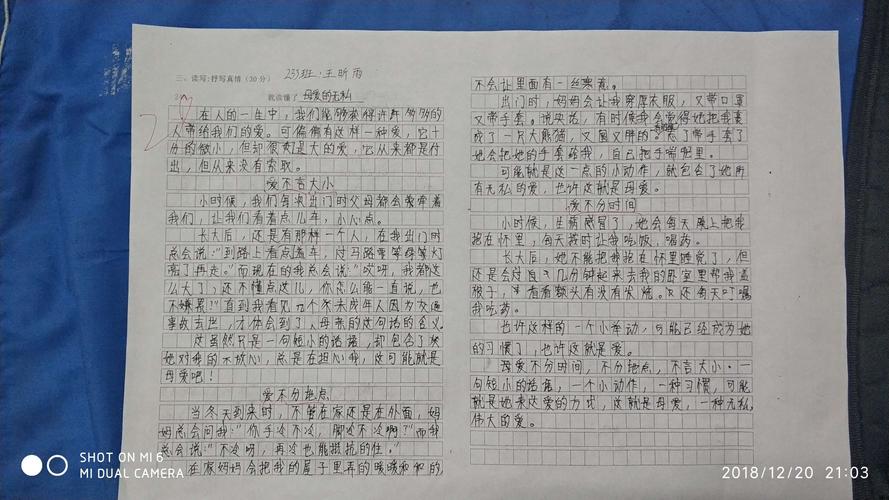 三、读写:抒写真情(30分) 233班·王昕雨
我读懂了 母爱的无私
在人的一生中，我们能够获得许许多多的
人带给我们的爱。可偏偏有这样一种爱，它十
分的微小，但却很是大的爱，它从来都是付
出，但从来没有索取。
爱不言大小
小时候，我们每次出门时父母都会牵着
我们，让我们看着点儿车，小心点。
长大后，还是有那样一个人，在我出门时
总会说："到路上看点车，过马路要等绿等灯
亮了再走。"而现在的我总会说："哎呀，我都这
么大了，还不懂点这儿，你怎么能一直说，也
不嫌累！"直到我看见几个未成年人因为交通
事故去世，才体会到了母亲的这句话的含义。
这虽然只是一句短小的话语，却包含了
她对我的不放心，总是在担心我，这可能就是
母爱吧！
爱不分地点
当冬天到来时，不管在家还是在外面，妈
妈总会问我："你手冷不冷，脚冷不冷啊？"而我
总会说："不冷呀，再冷也能抵抗的住。"
在家妈妈会把我的屋子里弄的暖暖和和的
不会让里面有一丝寒意。
出门时，妈妈会让我穿厚衣服，又带口罩
又带手套。说实话，有时候我会觉得她把我裹
成了一只大熊猫，又圆又胖的。忘了带手套了
她会把她的手套给我，自己把手揣兜里。
可能就是这一点的小动作，就包含了她所
有无私的爱，也许这就是母爱。
爱不分时间
小时候，生病感冒了，她会每天晚上把我
抱在怀里，每天按时让我吃饭、喝药。
长大后，她不能把我抱在怀里睡觉了，但
还是会过几分钟起来去我的卧室里帮我盖
被子，看看额头有没有发烧。还每天叮嘱
我吃药。
也许这样的一个小举动，可能已经成为她
的习惯了，也许这就是爱。
母爱不分时间，不分地点，不言大小。一
句短小的话语，一个小动作，一种习惯，可能
就是她表达爱的方式，这就是母爱，一种无私，
伟大的爱。
SHOT ON MI 6
MI DUAL CAMERA
2018/12/20 21:03